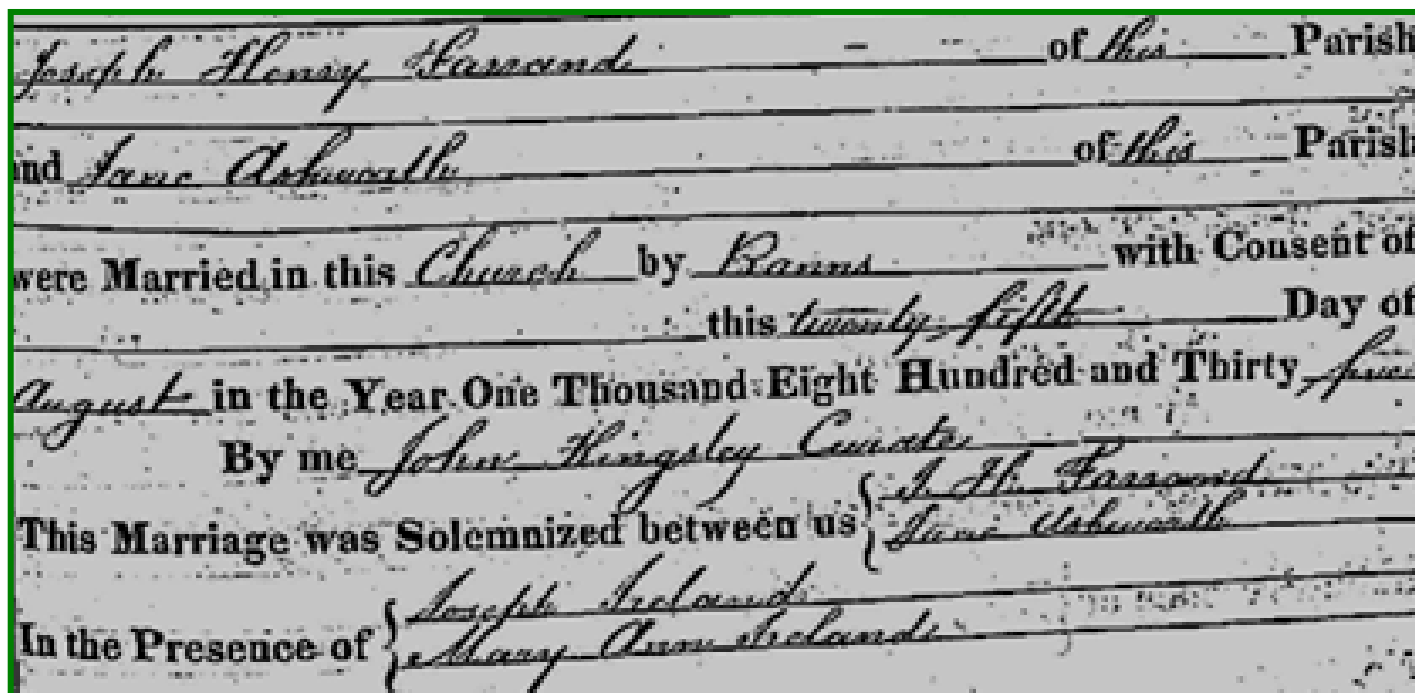 Joseph Henry Farrand - of this Parish
and Jane Ashworth of this Parish
were Married in this Church by Banns with Consent of
this twenty fifth Day of
August in the Year One Thousand Eight Hundred and Thirty five
By me John Kingsley Curate
This Marriage was Solemnized between us { J. H. Farrand
Jane Ashworth
In the Presence of { Joseph Ireland
Mary Ann Ireland